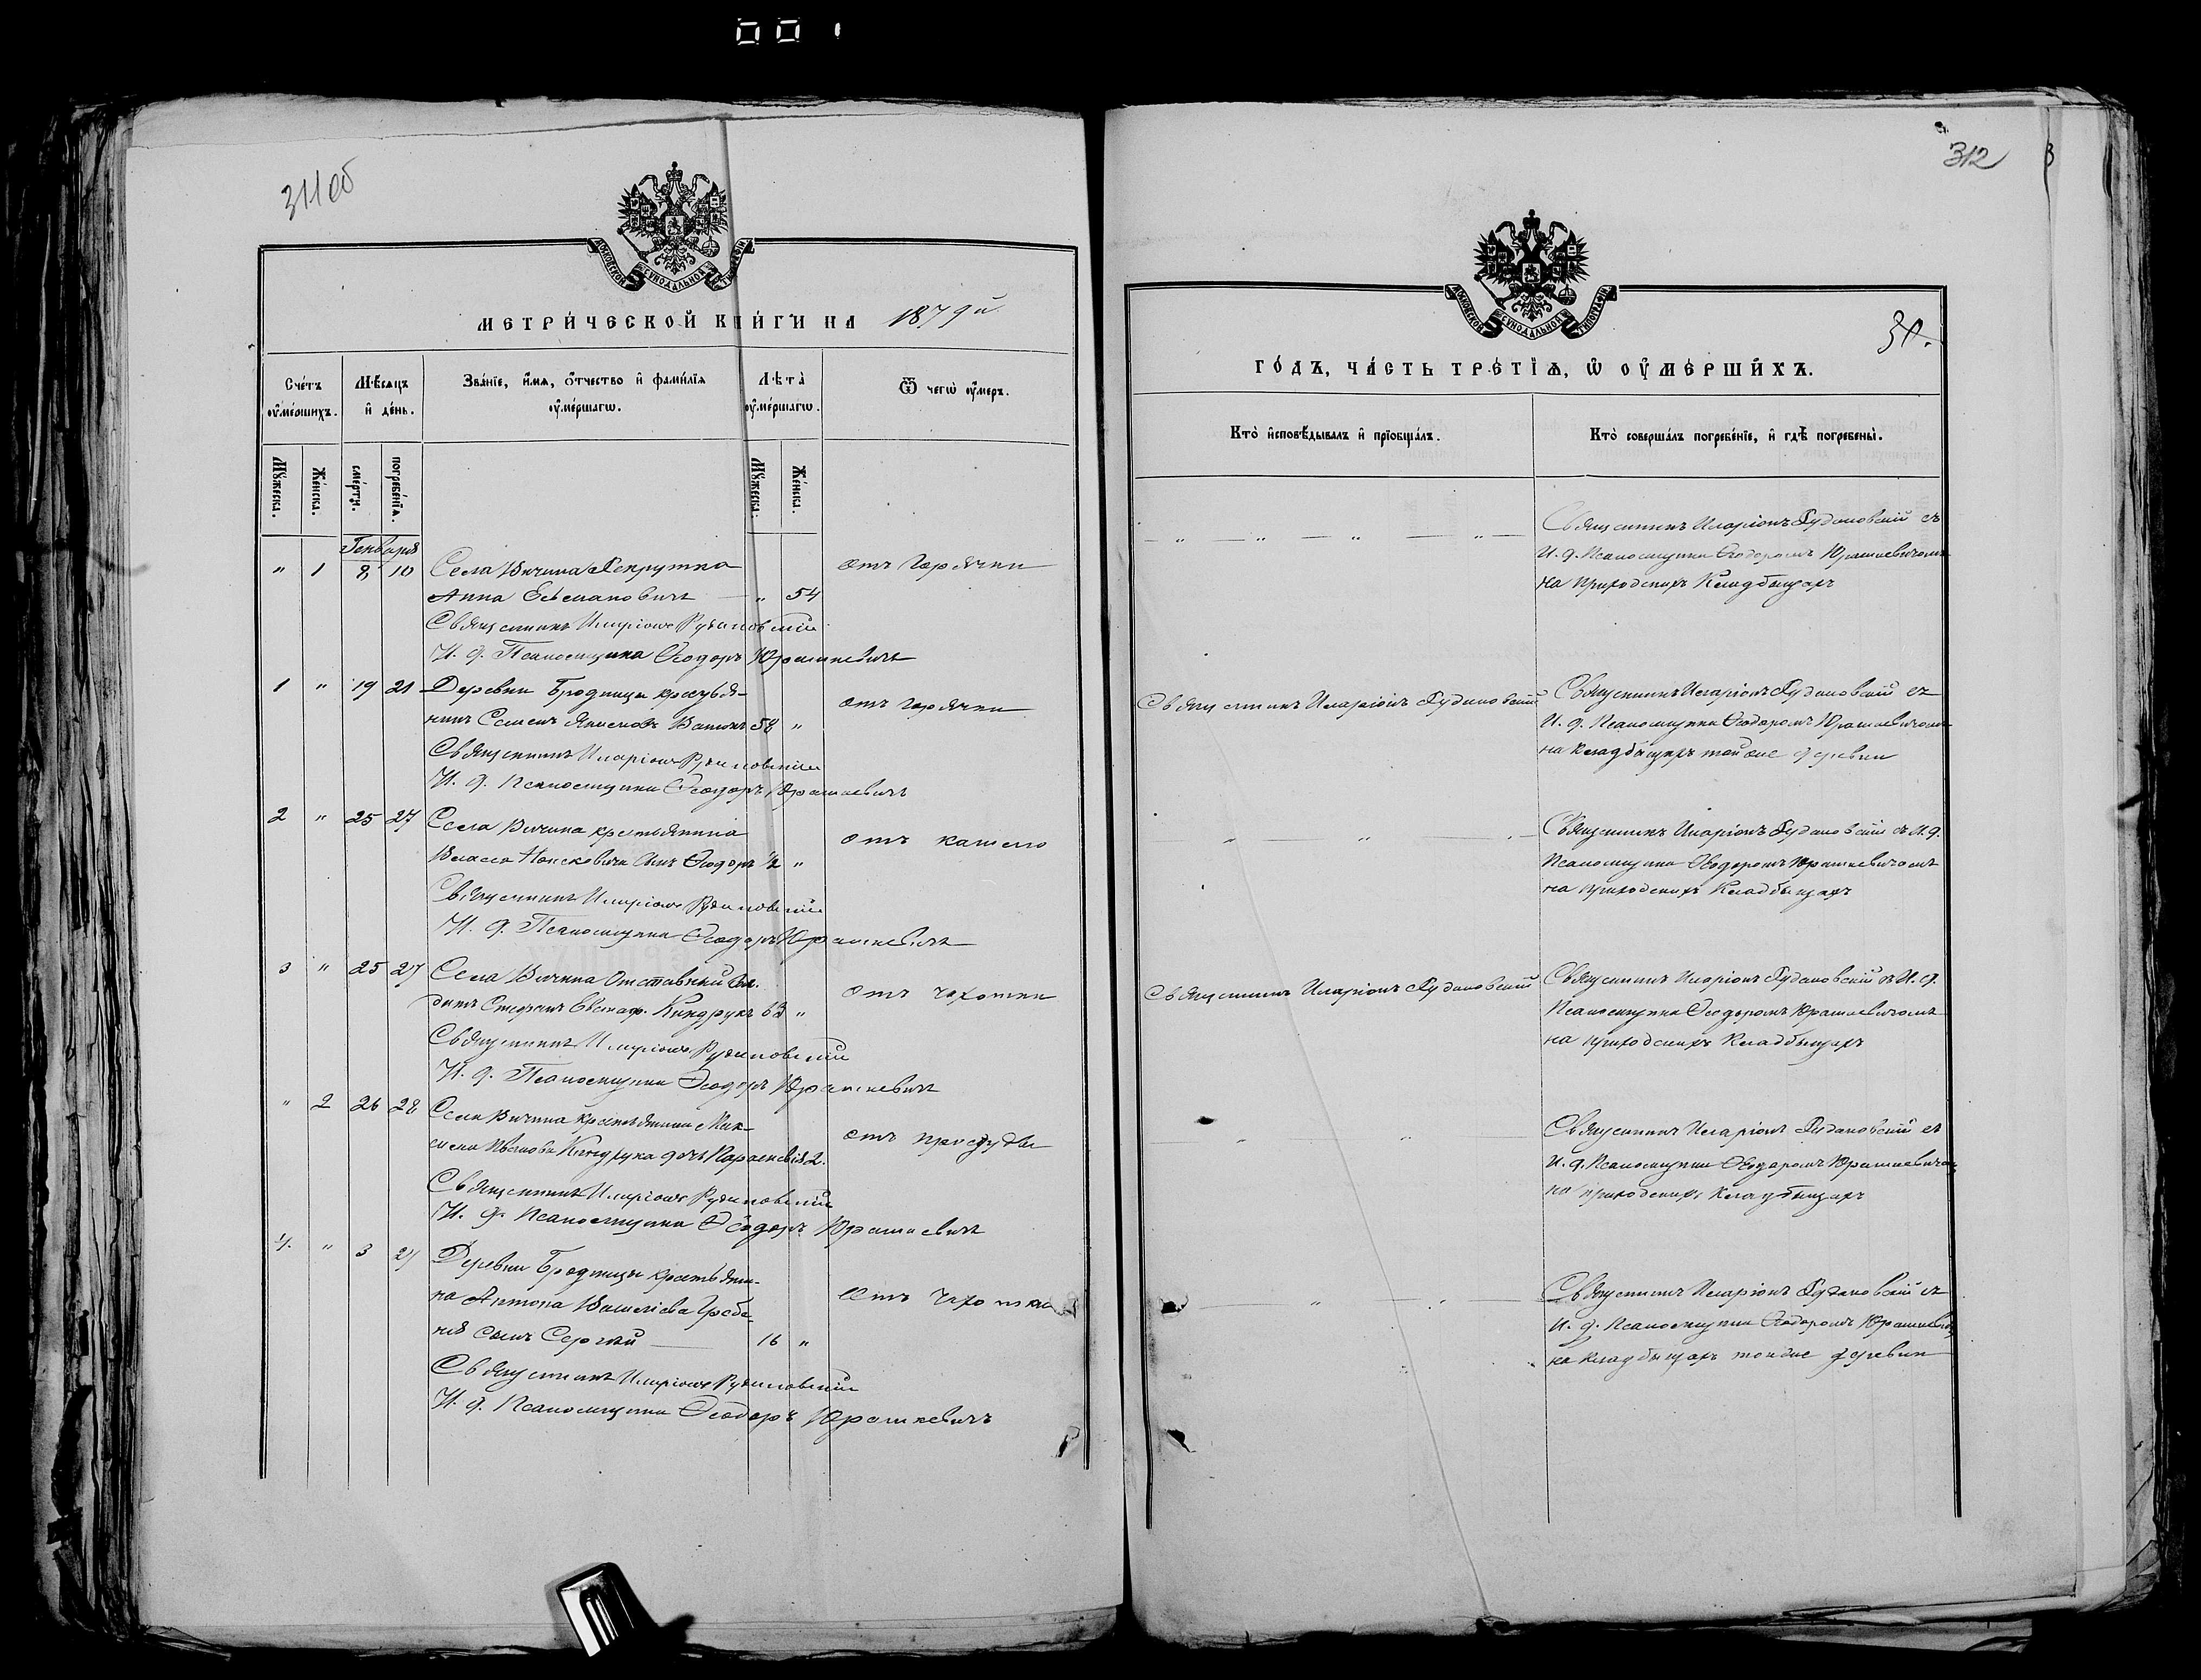 001
311об
МОСКОВСКОЙ СУНОДАЛЬНОЙ ТИПОГРАФІИ
МЕТРИ́ЧЕСКОЙ КНИ́ГИ НА 1879й
Сче́тъ ᲂу҆ме́ршихъ.
Мѣ́сяцъ и҆ де́нь.
Зва́нїе, и҆́мѧ, ѻ҆́тчество и҆ фами́лїѧ ᲂу҆ме́ршагѡ.
Лѣ́та̀ ᲂу҆ме́ршагѡ.
Ѿ чегѡ̀ ᲂу҆́меръ.
Мꙋ́жеска.
Же́нска.
сме́рти.
погребе́нїѧ.
Мꙋ́жеска.
Же́нска.
Генваря
" 1 8 10 Села Вичина Рекрутка от горячки
Анна — " 54
Священникъ Иларіонъ Рудановскій
И. д. Псаломщика Ѳеодоръ Юрашкевичъ
1 " 19 21 Деревни Бродницы крестья- отъ горячки
нинъ Семенъ 58 "
Священникъ Иларіонъ Рудановскій
И. д. Псаломщика Ѳеодоръ Юрашкевичъ
2 " 25 27 Села Вичина крестьянина отъ кашлю
Власа сынъ Ѳеодоръ ½ "
Священникъ Иларіонъ Рудановскій
И. д. Псаломщика Ѳеодоръ Юрашкевичъ
3 " 25 27 Села Вичина Отставный Сол- отъ чахотки
датъ Стефанъ Киндрукъ 63 "
Священникъ Иларіонъ Рудановскій
И. д. Псаломщика Ѳеодоръ Юрашкевичъ
" 2 26 28 Села Вичина крестьянина Мак- отъ простуды
сима Иванова Киндрука дочь Параскевія 2.
Священникъ Иларіонъ Рудановскій
И. д. Псаломщика Ѳеодоръ Юрашкевичъ
4. " 3 Деревни Бродницы крестьяни- отъ чахотки
на Антона Гребе-
ня сынъ Сергѣй — 16 "
Священникъ Иларіонъ Рудановскій
И. д. Псаломщика Ѳеодоръ Юрашкевичъ
312
МОСКОВСКОЙ СУНОДАЛЬНОЙ ТИПОГРАФІИ
30.
ГО́ДЪ, ЧА́СТЬ ТРЕ́ТЇѦ, Ѡ҆ ОУ҆МЕ́РШИХЪ.
Кто̀ и҆сповѣ́дывалъ и҆ прїѡбща́лъ.
Кто̀ соверша́лъ погребе́нїе, и҆ гдѣ̀ погребены̀.
— " — " — " — " —
Священникъ Иларіонъ Рудановскій съ
И. д. Псаломщика Ѳеодоромъ Юрашкевичомъ
на приходскихъ Кладбищахъ
Священникъ Иларіонъ Рудановскій
Священникъ Иларіонъ Рудановскій съ
И. д. Псаломщика Ѳеодоромъ Юрашкевичомъ
на кладбищахъ той же деревни
Священникъ Иларіонъ Рудановскій съ И. д.
Псаломщика Ѳеодоромъ Юрашкевичомъ
на приходскихъ Кладбищахъ
Священникъ Иларіонъ Рудановскій
Священникъ Иларіонъ Рудановскій съ И. д.
Псаломщика Ѳеодоромъ Юрашкевичомъ
на приходскихъ Кладбищахъ
Священникъ Иларіонъ Рудановскій съ
И. д. Псаломщика Ѳеодоромъ Юрашкевичом
на приходскихъ Кладбищахъ
Священникъ Иларіонъ Рудановскій съ
И. д. Псаломщика Ѳеодоромъ Юрашкевичомъ
на кладбищахъ той же деревни